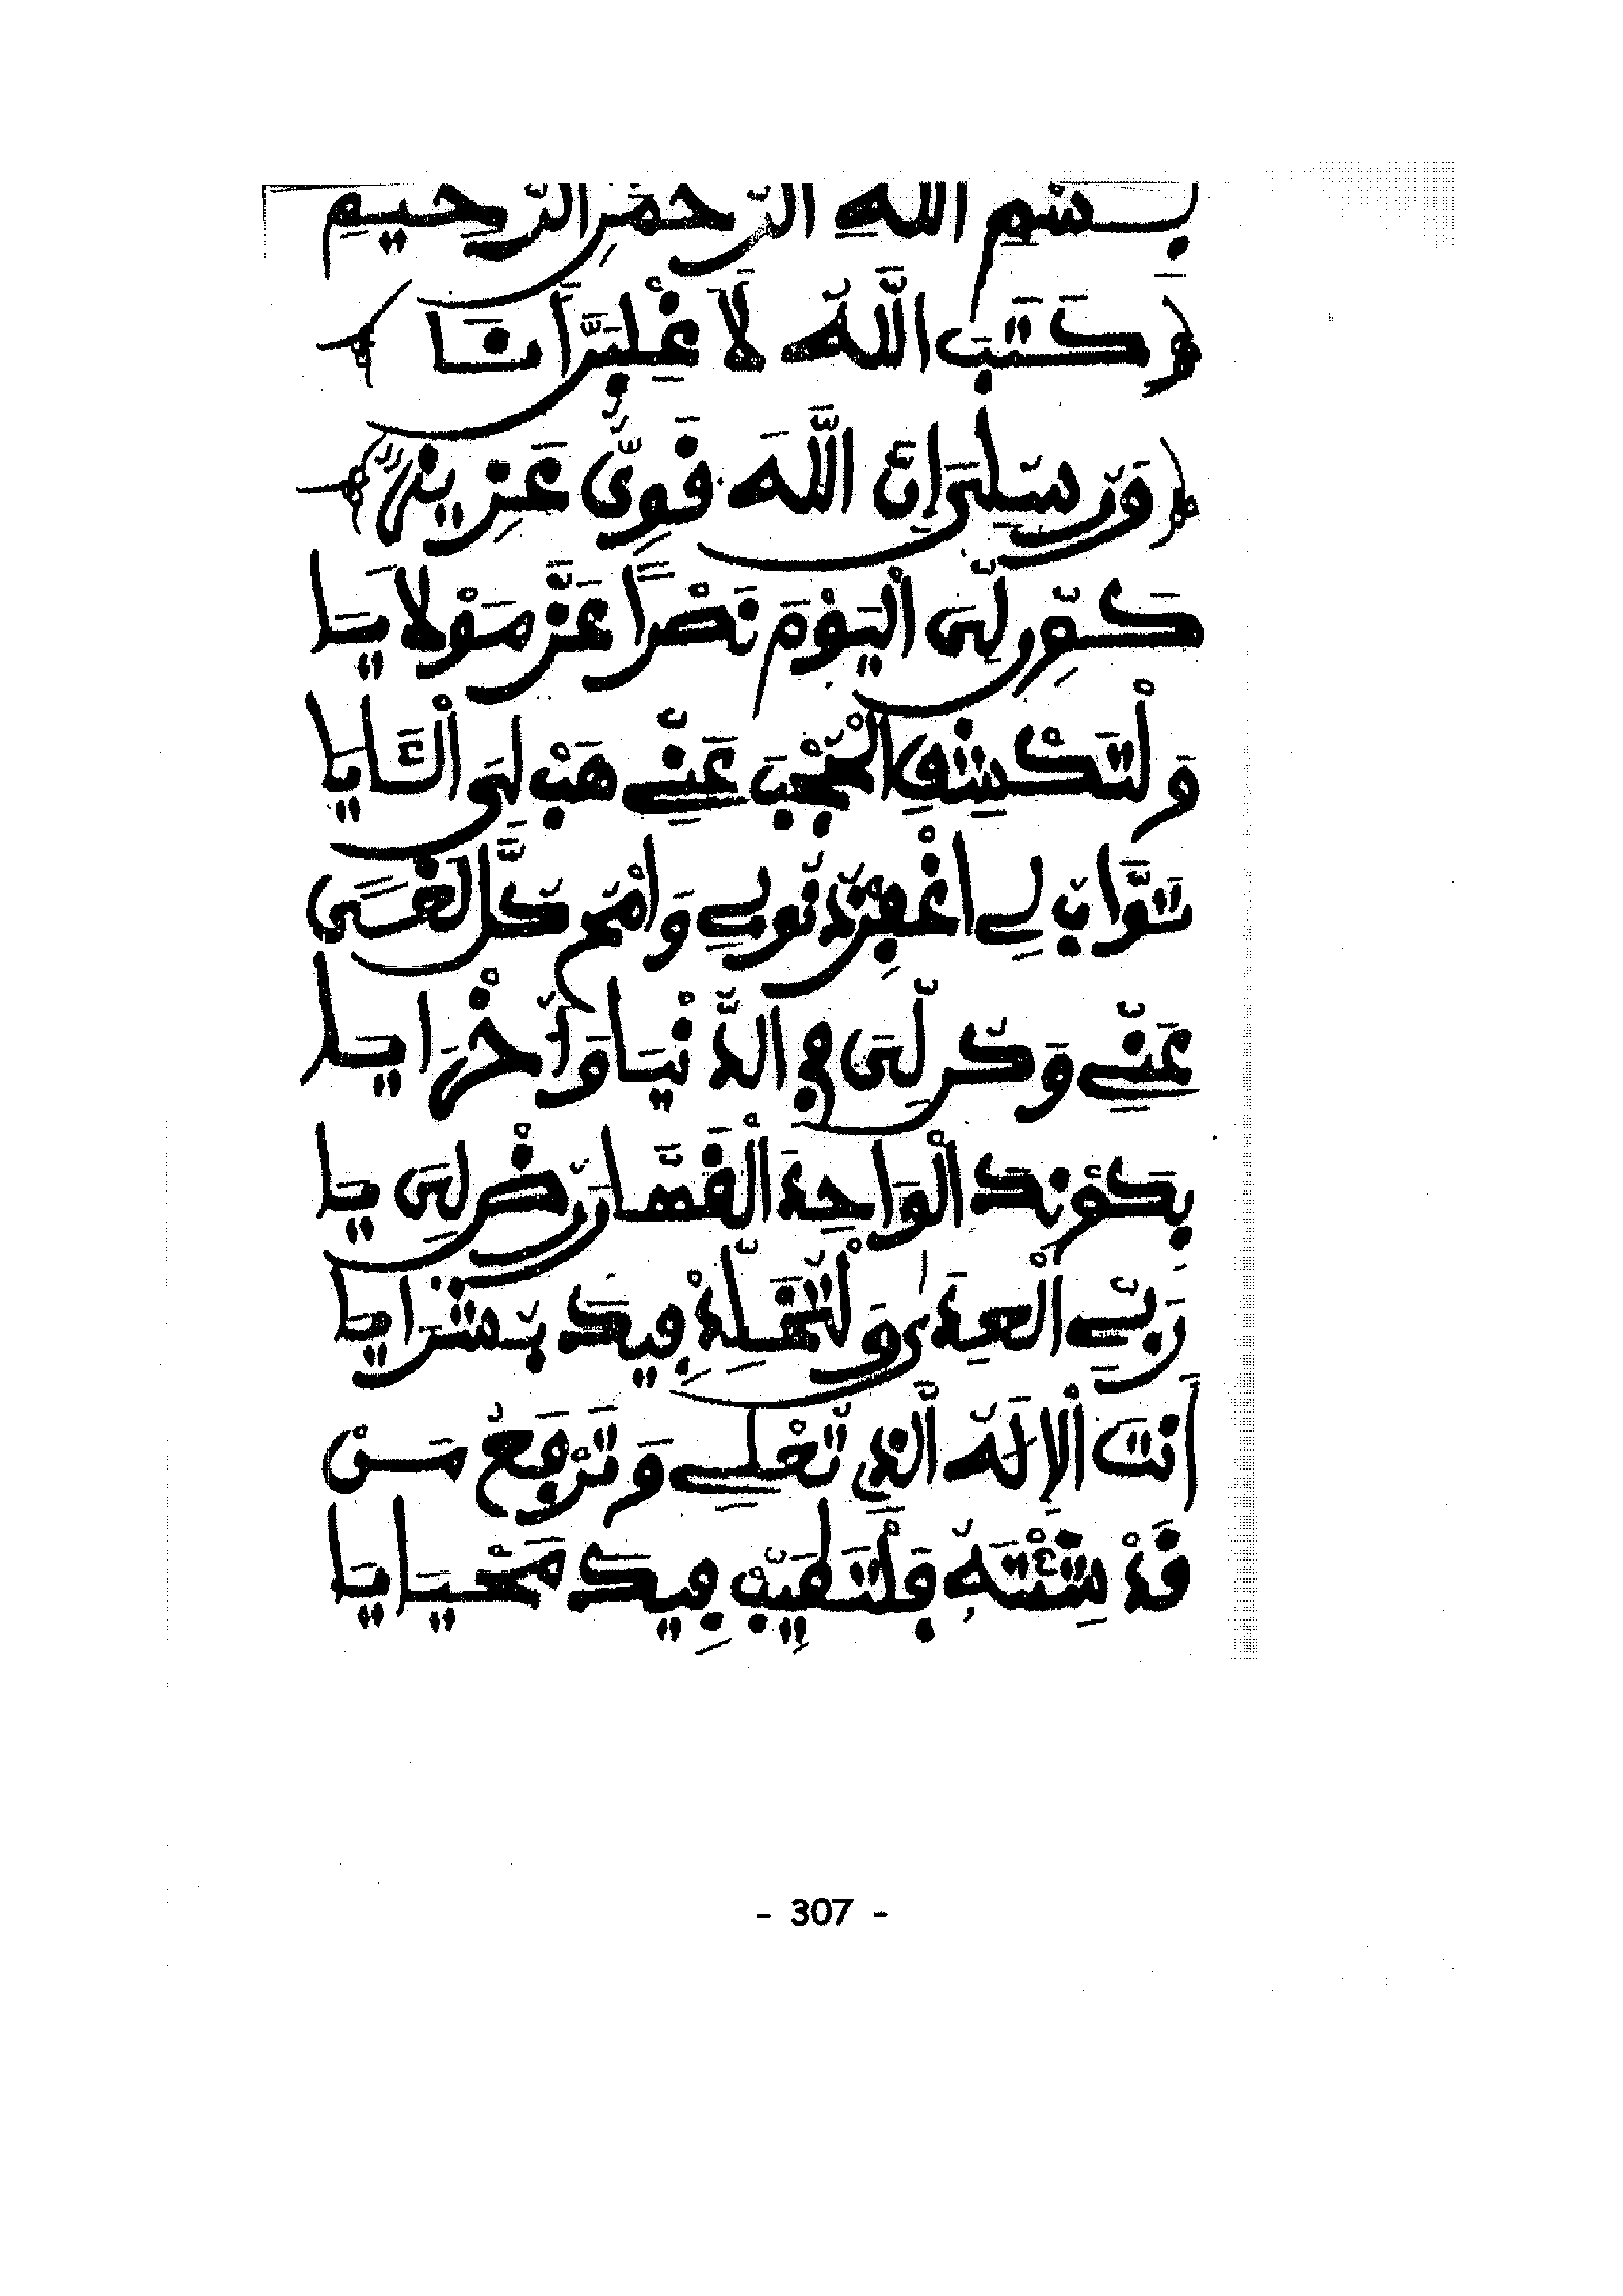 بِسْمِ اللهِ الرَّحْمَنِ الرَّحِيمِ
﴿كَتَبَ اللَّهُ لَا غْلِبَنَّ أَنَا﴾
﴿وَرُسُلِيَ إِنَّ اللَّهَ قَوِيٌّ عَزِيزٌ﴾
كَوِّن لِّيَ الْيَوْمَ نَصْراً عَزَّ مَوْلَايَا
وَلْتَكْشِفِ الْحُجْبَ عَنِّي هَبْ لِيَ الْئَايَا
تَوَّابُ لِي اغْفِرْ ذُنُوبِي وَامْحُ كُلَّ لَغًى
عَنِّي وَكُن لِّيَ فِي الدُّنْيَا وَأُخْرَايَا
بِكَوْنِكَ الْوَاحِدَ الْقَهَّارَ رُضْ لِيَ يَا
رَبِّي الْعِدَى وَلْتُخَلِّدْ فِيكَ بُشْرَايَا
أَنْتَ الْإِلَهُ الَّذِي تُعْلِي وَتَرْفَعُ مَنْ
قَدْ شِئْتَهُ فَلْتُطَيِّبْ فِيكَ مَحْيَايَا
- 307 -